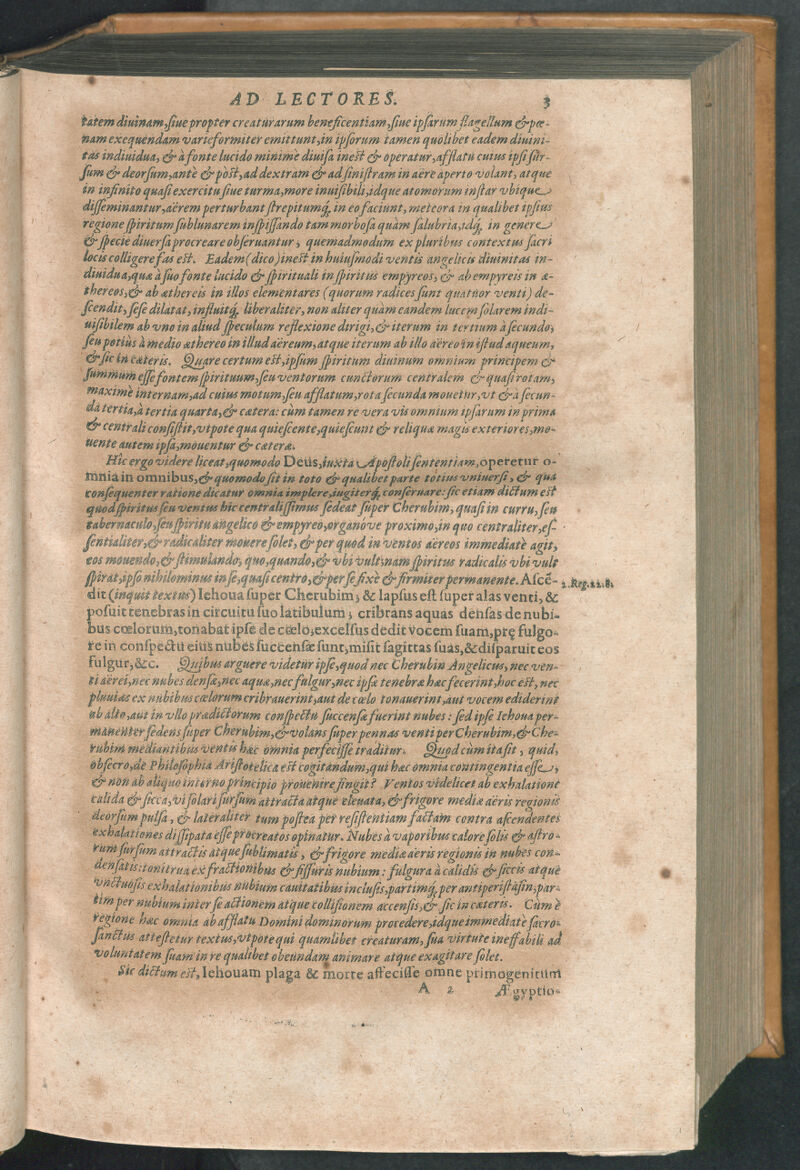 AD LECTORES. 3
tatem diuinam, ſiue propter creaturarum beneficentiam, ſiue ipſarum flagellum & pœ-
nam exequendam varieformiter emittunt, in ipſorum tamen quolibet eadem diuini-
tas indiuidua, & à fonte lucido minimè diuiſa ineſt & operatur, afflatu cuius ipſi ſur-
ſum & deorſum, antè & pòſt, ad dextram & ad ſiniſtram in aëre aperto volant, atque
in infinito quaſi exercitu ſiue turma, more inuiſibili, idque atomorum inſtar vbique
diſſeminantur, aërem perturbant ſtrepitumq́; in eo faciunt, meteora in qualibet ipſius
regione ſpiritum ſublunarem inſpiſſando tam morboſa quàm ſalubria, idq́; in genere
& ſpecie diuerſa procreare obſeruantur, quemadmodum ex pluribus contextus ſacri
locis colligere fas eſt. Eadem (dico) ineſt in huiuſmodi ventis angelicis diuinitas in-
diuidua, quæ à ſuo fonte lucido & ſpirituali in ſpiritus empyreos, & ab empyreis in æ-
thereos, & ab æthereis in illos elementares (quorum radices ſunt quatuor venti) de-
ſcendit, ſeſe dilatat, influitq́; liberaliter, non aliter quàm eandem lucem ſolarem indi-
uiſibilem ab vno in aliud ſpeculum reflexione dirigi, & iterum in tertium à ſecundo,
ſeu potiùs à medio æthereo in illud aëreum, atque iterum ab illo aëreo in iſtud aqueum,
& ſic in cæteris. Quare certum eſt, ipſum ſpiritum diuinum omnium principem &
ſummum eſſe fontem ſpirituum, ſeu ventorum cunctorum centralem & quaſi rotam,
maximè internam, ad cuius motum, ſeu afflatum, rota ſecunda mouetur, vt & à ſecun-
da tertia, à tertia quarta, & cætera: cùm tamen re vera vis omnium ipſarum in prima
& centrali conſiſtit, vtpote qua quieſcente, quieſcunt & reliquæ magis exteriores, mo-
uente autem ipſa, mouentur & cæteræ.
Hîc ergo videre liceat, quomodo Deus, iuxta Apoſtoli ſententiam, operetur o-
mnia in omnibus, & quomodo ſit in toto & qualibet parte totius vniuerſi, & qua
conſequenter ratione dicatur omnia implere, iugiterq́; conſeruare: ſic etiam dictum eſt
quod ſpiritus ſeu ventus hic centraliſſimus ſedeat ſuper Cherubim, quaſi in curru, ſeu
tabernaculo, ſeu ſpiritu angelico & empyreo, organóve proximo, in quo centraliter, eſ-
ſentialiter, & radicaliter mouere ſolet, & per quod in ventos aëreos immediatè agit,
eos mouendo, & ſtimulando, quo, quando, & vbi vult; nam ſpiritus radicalis vbi vult
ſpirat, ipſo nihilominus in ſe, quaſi centro, & per ſe fixè & firmiter permanente. Aſcē- 2. Reg. 22. 8.
dit (inquit textus) Iehoua ſuper Cherubim, & lapſus eſt ſuper alas venti, &
poſuit tenebras in circuitu ſuo latibulum, cribrans aquas denſas de nubi-
bus cœlorum, tonabat ipſe de cœlo, excelſus dedit vocem ſuam, prę fulgo-
re in conſpectu eius nubes ſuccenſæ ſunt, miſit ſagittas ſuas, & diſparuit eos
fulgur, &c. Quibus arguere videtur ipſe, quod nec Cherubin Angelicus, nec ven-
ti aërei, nec nubes denſæ, nec aquæ, nec fulgur, nec ipſæ tenebræ hæc fecerint, hoc eſt, nec
pluuias ex nubibus cœlorum cribrauerint, aut de cœlo tonauerint, aut vocem ediderint
ab alto, aut in vllo prædictorum conſpectu ſuccenſæ fuerint nubes: ſed ipſe Iehoua per-
manenter ſedens ſuper Cherubim, & volans ſuper pennas venti per Cherubim, & Che-
rubim mediantibus ventis hæc omnia perfeciſſe traditur. Quod cùm ita ſit, quid,
obſecro, de Philoſophia Ariſtotelica eſt cogitandum, qui hæc omnia contingentia eſſe,
& non ab aliquo interno principio prouenire fingit? Ventos videlicet ab exhalatione
calida & ſicca, vi ſolari ſurſum attracta atque eleuata, & frigore mediæ aëris regionis
deorſum pulſa, & lateraliter tum poſtea per reſiſtentiam factam contra aſcendentes
exhalationes diſſipata eſſe procreatos opinatur. Nubes à vaporibus calore ſolis & aſtro-
rum ſurſum attractis atque ſublimatis, & frigore mediæ aëris regionis in nubes con-
denſatis: tonitrua ex fractionibus & fiſſuris nubium: fulgura à calidis & ſiccis atque
vnctuoſis exhalationibus nubium cauitatibus incluſis, partimq́; per antiperiſtaſin, par-
tim per nubium inter ſe actionem atque colliſionem accenſis, & ſic in cæteris. Cùm è
regione hæc omnia ab afflatu Domini dominorum procedere, idque immediatè ſacro-
ſanctus atteſtetur textus, vtpote qui quamlibet creaturam, ſua virtute ineffabili ad
voluntatem ſuam in re qualibet obeundam animare atque exagitare ſolet.
Sic dictum eſt, Iehouam plaga & morte affeciſſe omne primogenitum
A 2 Ægyptio-